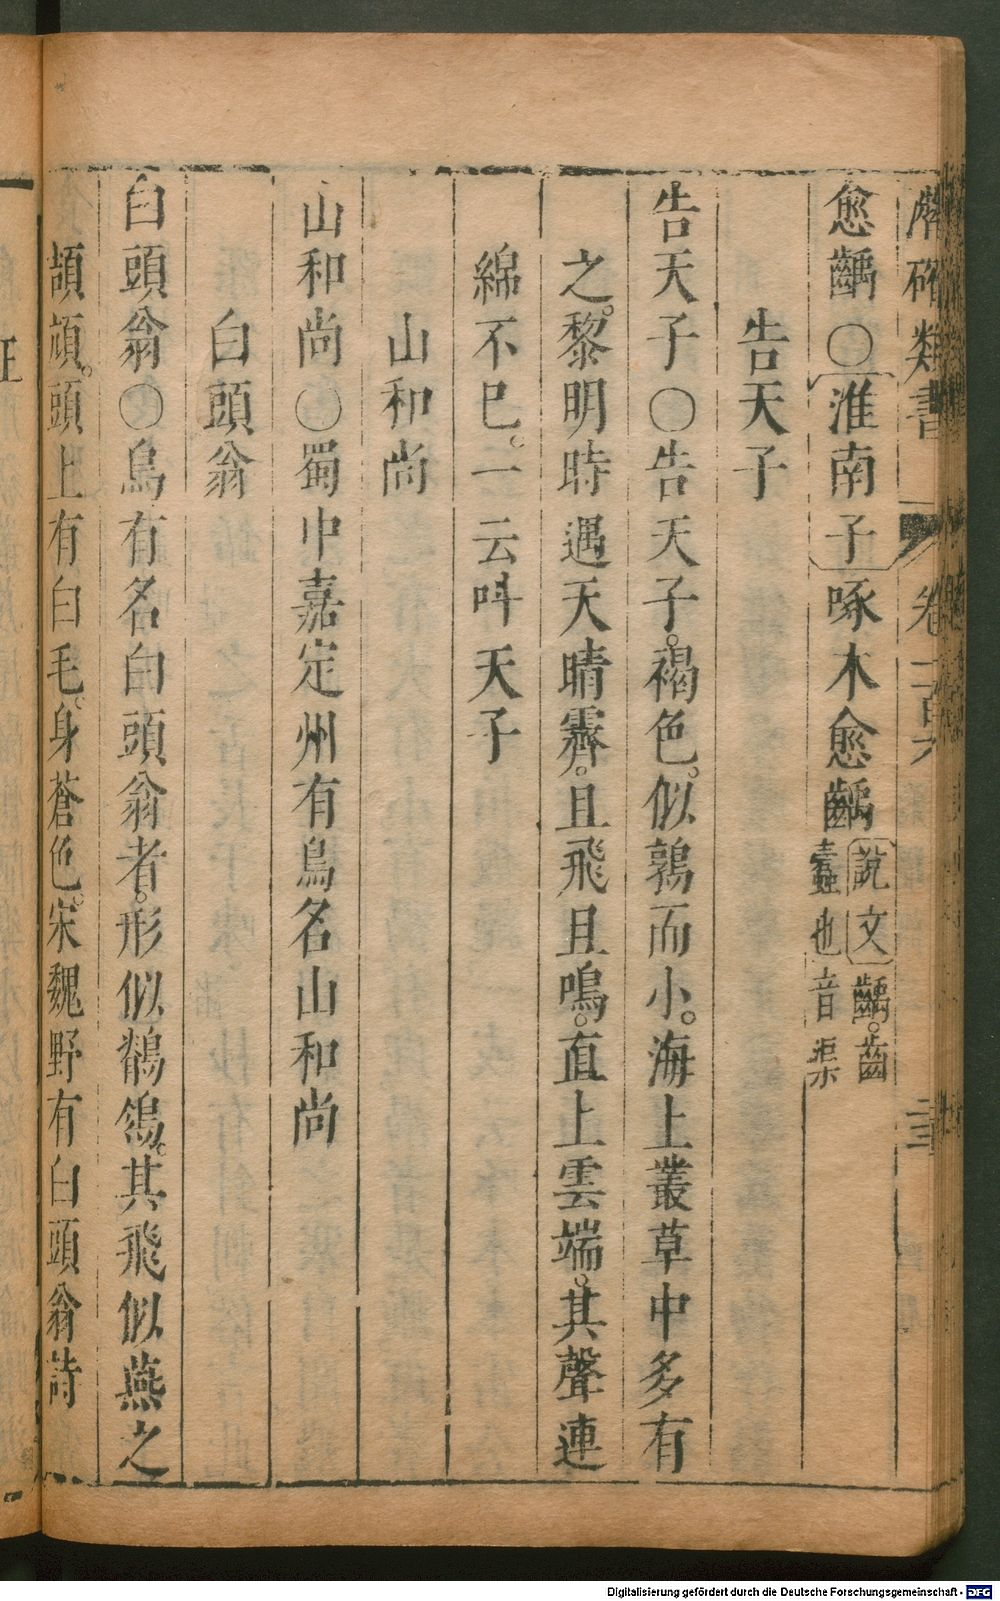 潛確類書 卷一百六 二十三
愈齲○淮南子啄木愈齲說文齲。齒蠹也音渠
告天子
告天子○告天子。褐色。似鶉而小。海上叢草中多有
之。黎明時遇天晴霽。且飛且鳴。直上雲端。其聲連
綿不已。一云呌天子
山和尚
山和尚○蜀中嘉定州有鳥名山和尚
白頭翁
白頭翁○鳥有名白頭翁者。形似鶺鴒。其飛似燕之
頡頏。頭上有白毛。身蒼色。宋魏野有白頭翁詩
Digitalisierung gefördert durch die Deutsche Forschungsgemeinschaft - DFG